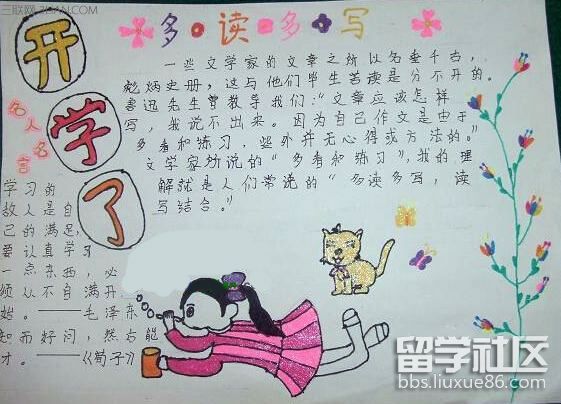 三联网 3LIAN.COM
开学了
多·读·多·写
一些文学家的文章之所以名垂千古，
彪炳史册，这与他们毕生苦读是分不开的。
鲁迅先生曾教导我们：“文章应该怎样
写，我说不出来。因为自己作文是由于
多看和练习，此外并无心得或方法的。”
文学家所说的“多看和练习”，我的理
解就是人们常说的“多读多写，读
写结合。”
名人名言
学习的
敌人是自
己的满足，
要认真学习
一点东西，必
须从不自满开
始。——毛泽东
知而好问，然后能
才。——《荀子》
留学社区
bbs.liuxue86.com